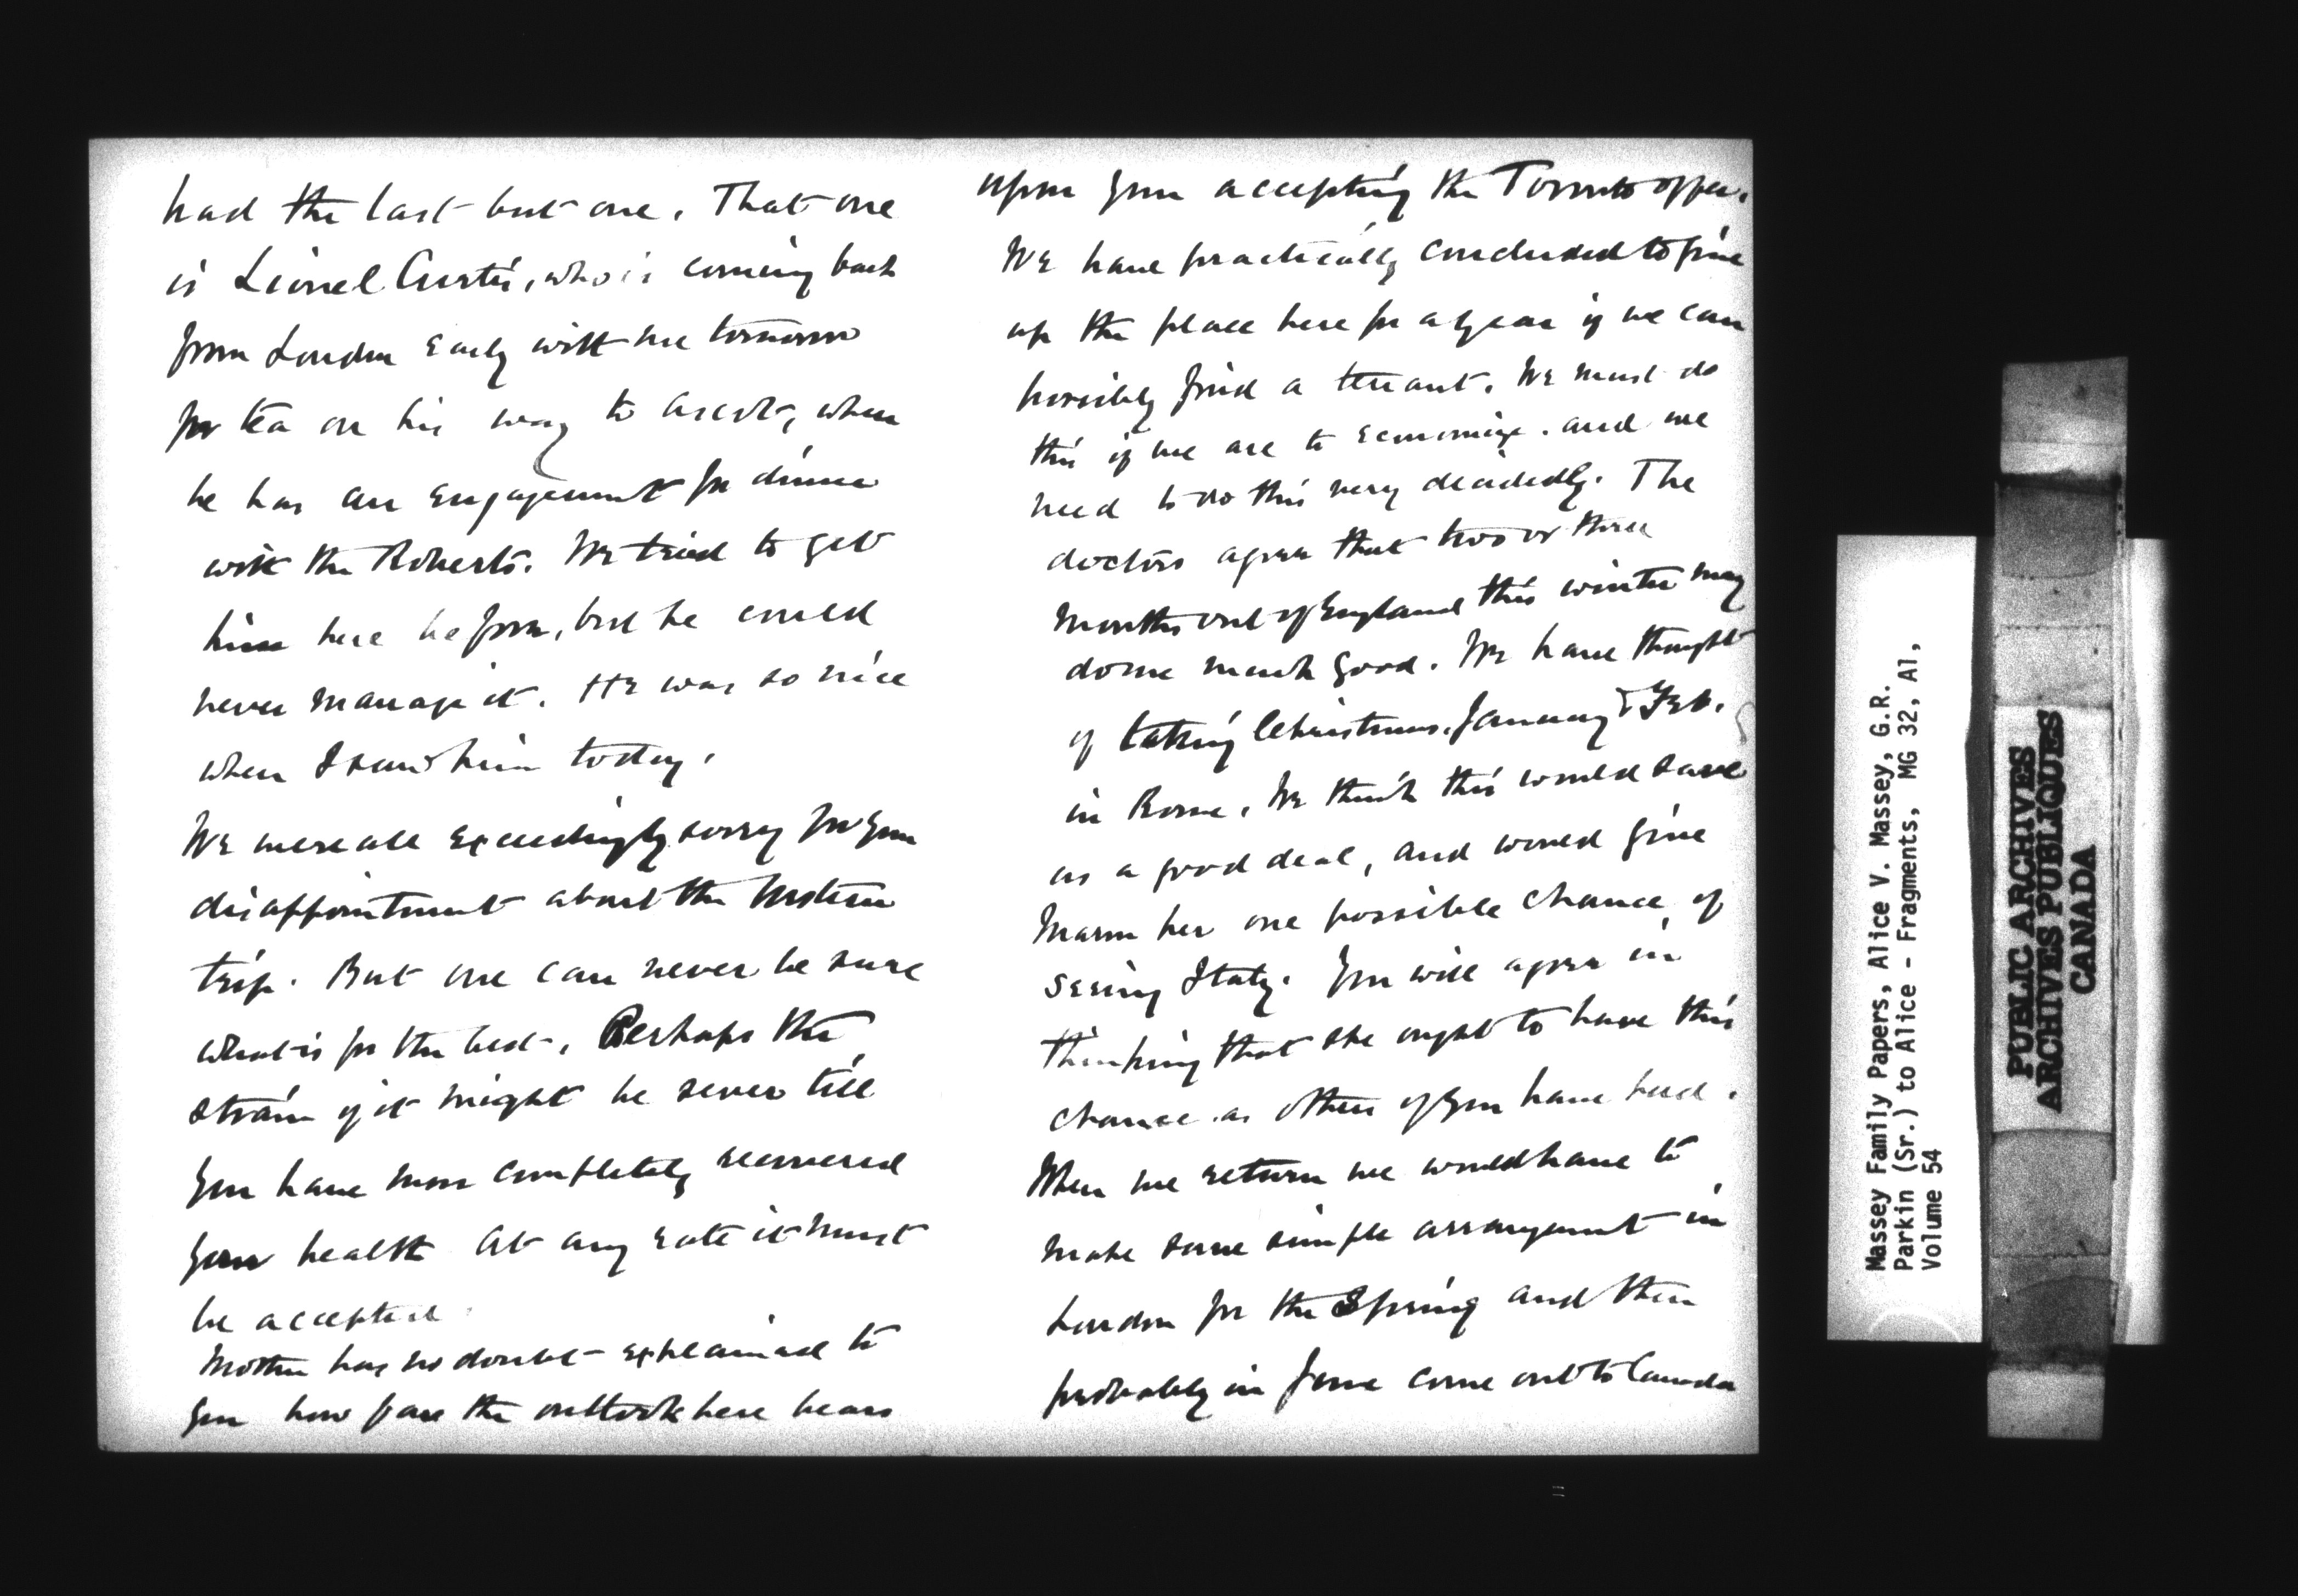 had the last but one. That one
is Lionel Curtis, who is coming back
from London early with me tomorrow
for tea on his way to Ascot, where
he has an engagement for dinner
with the Roberts. We tried to get
him here before, but he could
never manage it. He was so nice
when I saw him today.
We were all exceedingly sorry for your
disappointment about the
trip. But one can never be sure
what is for the best. Perhaps the
strain of it might be severe till
you have more completely recovered
your health At any rate it must
be accepted
Mother has no doubt explained to
you how far the outlook here bears
upon your accepting the Toronto offer.
We have practically concluded to give
up the place here for a year if we can
possibly find a tenant. We must do
this if we are to economize. and we
need to do this very decidedly. The
doctors agree that two or three
months out of England this winter may
do me much good. We have thought
of taking Christmas, January & Feb.
in Rome. We think this would save
us a good deal, and would give
her one possible chance of
seeing Italy. You will agree in
thinking that she ought to have this
chance as others of you have had.
When we return we would have to
make some simple arrangement in
London for the Spring and then
probably in June come out to Canada
Massey Family Papers, Alice V. Massey, G.R.
Parkin (Sr.) to Alice - Fragments, MG 32, A1,
Volume 54
PUBLIC ARCHIVES
ARCHIVES PUBLIQUES
CANADA